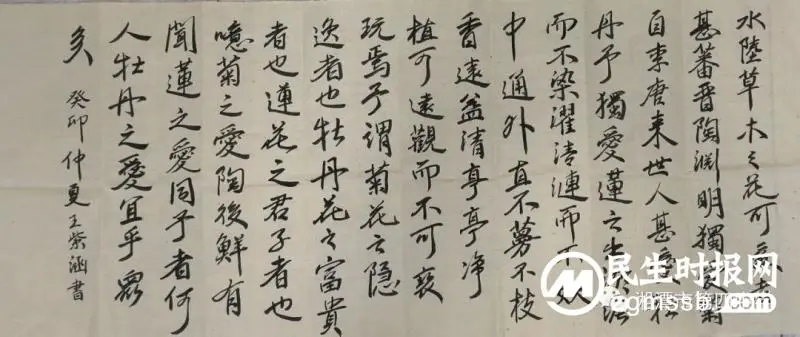 水陸草木之花可愛者
甚蕃晋陶渊明獨愛菊
自李唐来世人甚愛牡
丹予獨愛蓮之出淤
而不染濯清漣而不妖
中通外直不蔓不枝
香遠益清亭亭净
植可遠觀而不可褻
玩焉予謂菊花之隐
逸者也牡丹花之富貴
者也蓮花之君子者也
噫菊之愛陶後鮮有
聞蓮之愛同予者何
人牡丹之愛宜乎衆
矣
癸卯仲夏王紫涵書
民生时报网